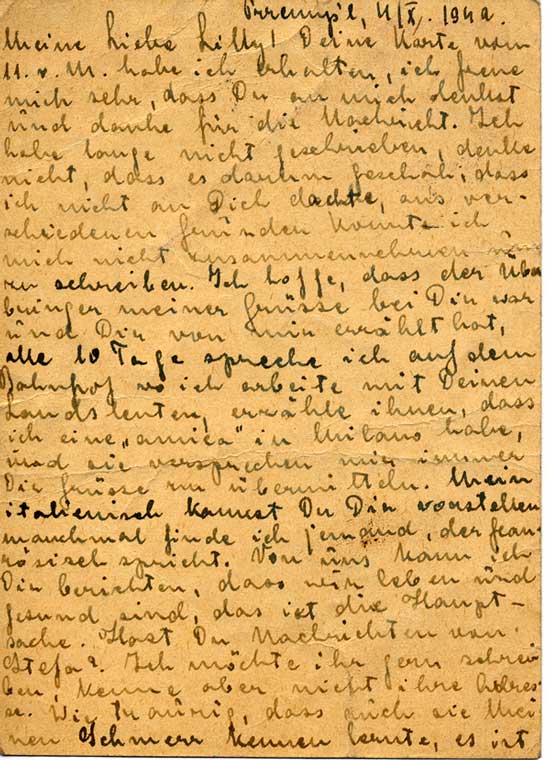 Przemyśl, 4/X. 1942.
Meine liebe Lilly! Deine Karte vom
11. v. M. habe ich erhalten, ich freue
mich sehr, dass Du an mich denkst
und danke für die Nachricht. Ich
habe lange nicht geschrieben, denke
nicht, dass es darum geschah, dass
ich nicht an Dich dachte, aus ver-
schiedenen Gründen konnte ich
mich nicht zusammennehmen um
zu schreiben. Ich hoffe, dass der Über
bringer meiner Grüsse bei Dir war
und Dir von mir erzählt hat,
alle 10 Tage spreche ich auf dem
Bahnhof wo ich arbeite mit Deinen
Landsleuten, erzähle ihnen, dass
ich eine „amica" in Milano habe,
und sie versprechen mir immer
Dir Grüsse zu übermitteln. Mein
italienisch kannst Du Dir vorstellen
manchmal finde ich jemand, der fran-
zösisch spricht. Von uns kann ich
Dir berichten, dass wir leben und
gesund sind, das ist die Haupt-
sache. Hast Du Nachrichten von
Stefa? Ich möchte ihr gern schrei-
ben, kenne aber nicht ihre Adres-
se. Wie traurig, dass auch sie Mei
nen Schmerz kennen lernte, es ist